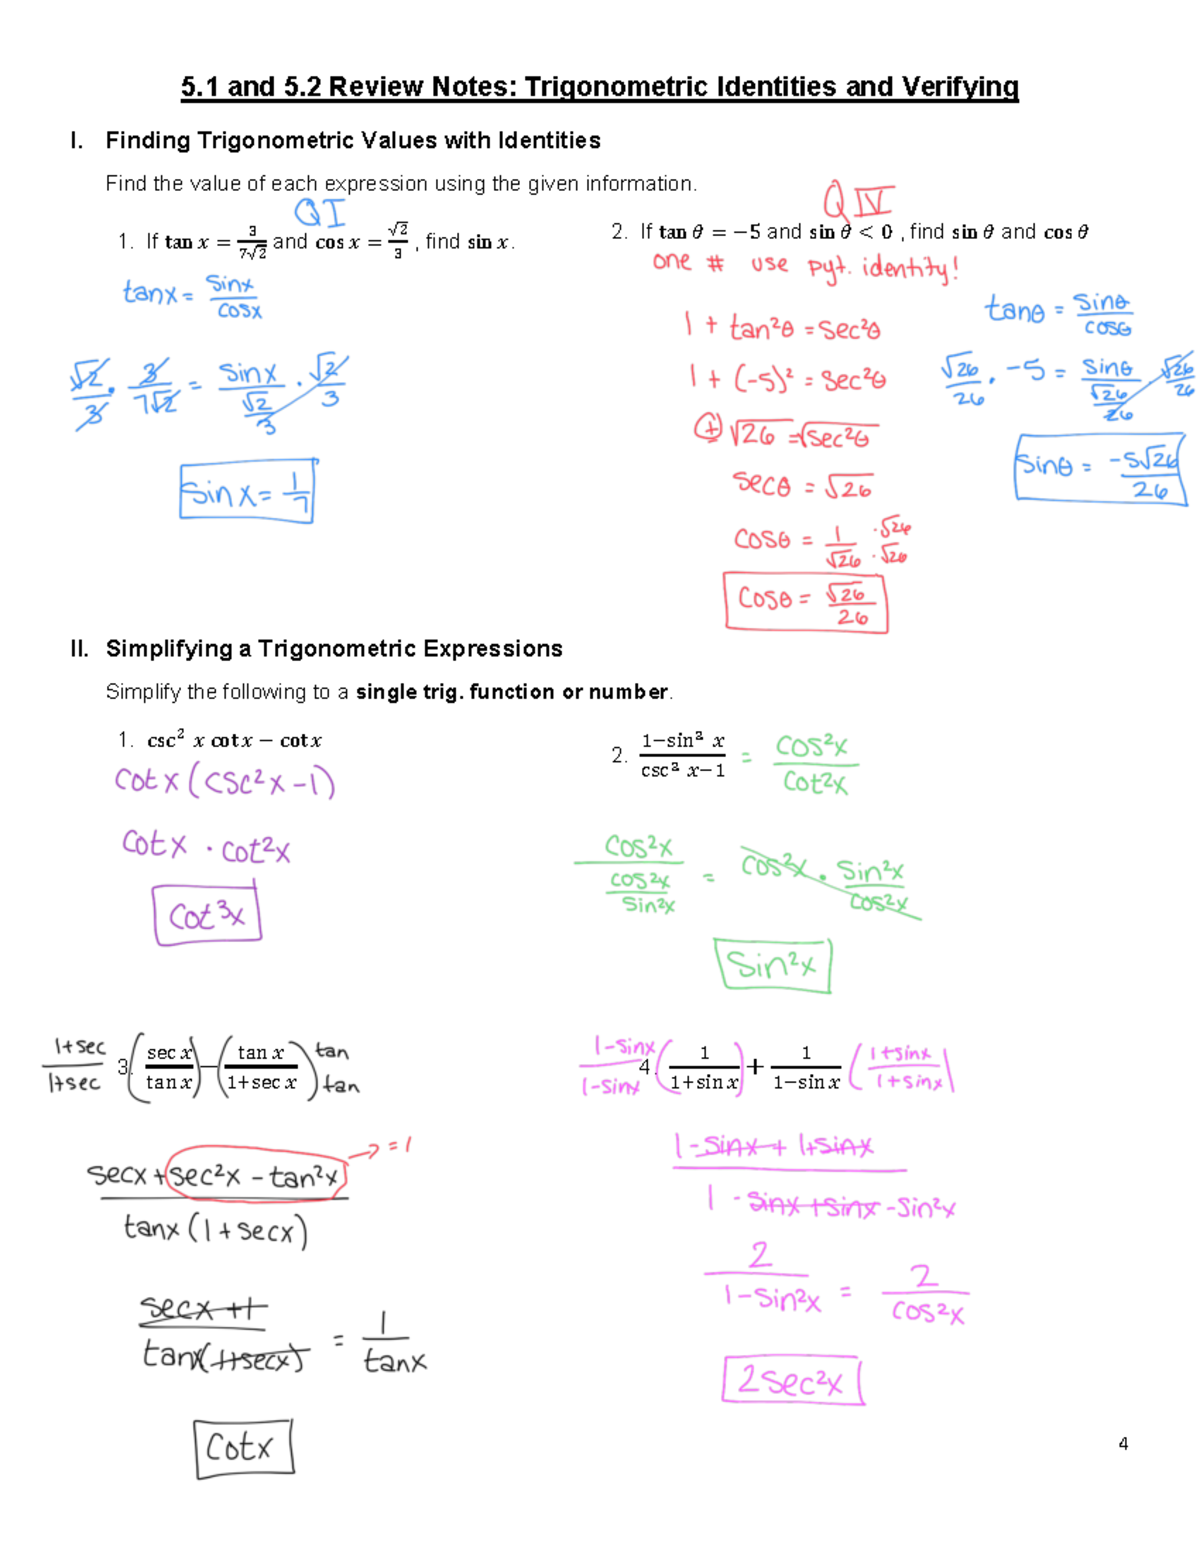 5.1 and 5.2 Review Notes: Trigonometric Identities and Verifying
I. Finding Trigonometric Values with Identities
Find the value of each expression using the given information.
QI
1. If tan x = 3/(7√2) and cos x = √2/3 , find sin x.
tanx = sinx/cosx
√2/3 · 3/(7√2) = sinx/(√2/3) · √2/3
sinx = 1/7
QIV
2. If tan θ = −5 and sin θ < 0 , find sin θ and cos θ
one # use pyt. identity!
1 + tan²θ = sec²θ
1 + (-5)² = sec²θ
(+) √26 = √sec²θ
secθ = √26
cosθ = 1/√26 · √26 · √26
cosθ = √26/26
tanθ = sinθ/cosθ
√26/26 · -5 = sinθ/(√26/26) · √26/26
sinθ = -5√26/26
II. Simplifying a Trigonometric Expressions
Simplify the following to a single trig. function or number.
1. csc² x cot x − cot x
cotx(csc²x -1)
cotx · cot²x
cot³x
2. (1−sin² x)/(csc² x−1) = cos²x/cot²x
cos²x/(cos²x/sin²x) = cos²x · sin²x/cos²x
sin²x
1+sec/1+sec 3. (sec x/tan x) − (tan x/(1+sec x)) tan/tan
secx + sec²x - tan²x → =1
tanx(1+secx)
secx+1/tanx(1+secx) = 1/tanx
cotx
1-sinx/1-sinx 4. (1/(1+sin x)) + 1/(1−sin x) (1+sinx/1+sinx)
1-sinx + 1+sinx
1 - sinx + sinx - sin²x
2/(1-sin²x) = 2/cos²x
2sec²x
4